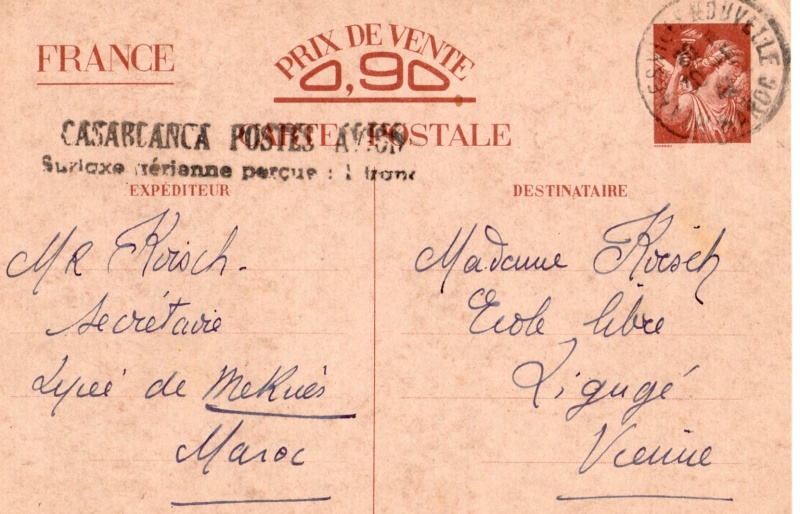 FRANCE
PRIX DE VENTE
0,90
CARTE POSTALE
CASABLANCA POSTES AVION
Surtaxe aérienne perçue : 1 franc
EXPÉDITEUR
Mr Kirsch.
Secrétaire
Lycée de Meknès
Maroc
DESTINATAIRE
Madame Kirsch
Ecole libre
Ligugé
Vienne
NOUVELLE
MAROC